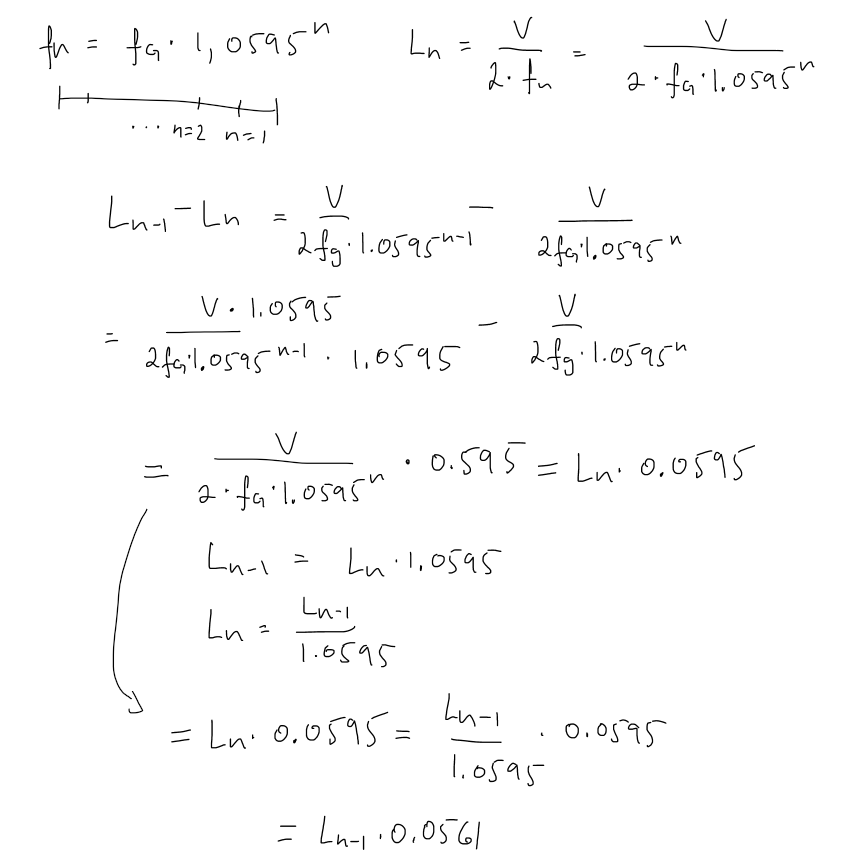 fn = fG · 1,0595^n    Ln = V / (2 · fn) = V / (2 · fG · 1.0595^n)
... n=2 n=1
Ln-1 - Ln = V / (2fg · 1.0595^n-1) - V / (2fG · 1.0595^n)
= V · 1.0595 / (2fG · 1.0595^n-1 · 1.0595) - V / (2fg · 1.0595^n)
= V / (2 · fG · 1.0595^n) · 0.595 = Ln · 0.0595
Ln-1 = Ln · 1.0595
Ln = Ln-1 / 1.0595
= Ln · 0.0595 = Ln-1 / 1.0595 · 0.0595
= Ln-1 · 0.0561